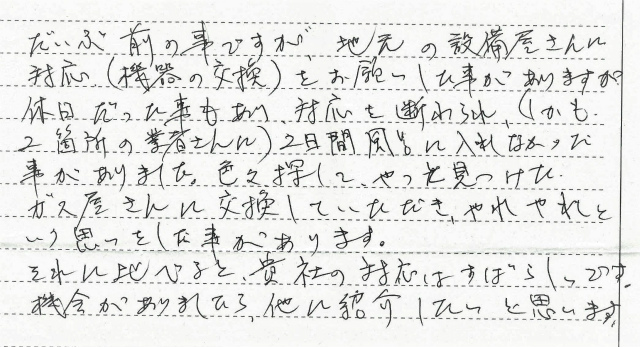 だいぶ前の事ですが、地元の設備屋さんに
対応(機器の交換)をお願いした事がありますが
休日だった事もあり、対応を断わられ、(しかも
2箇所の業者さんに)2日間風呂に入れなかった
事がありました。色々探して、やっと見つけた
ガス屋さんに交換していただき、やれやれと
いう思いをした事があります。
それに比べると、貴社の対応はすばらしいです。
機会がありましたら、他に紹介したいと思います